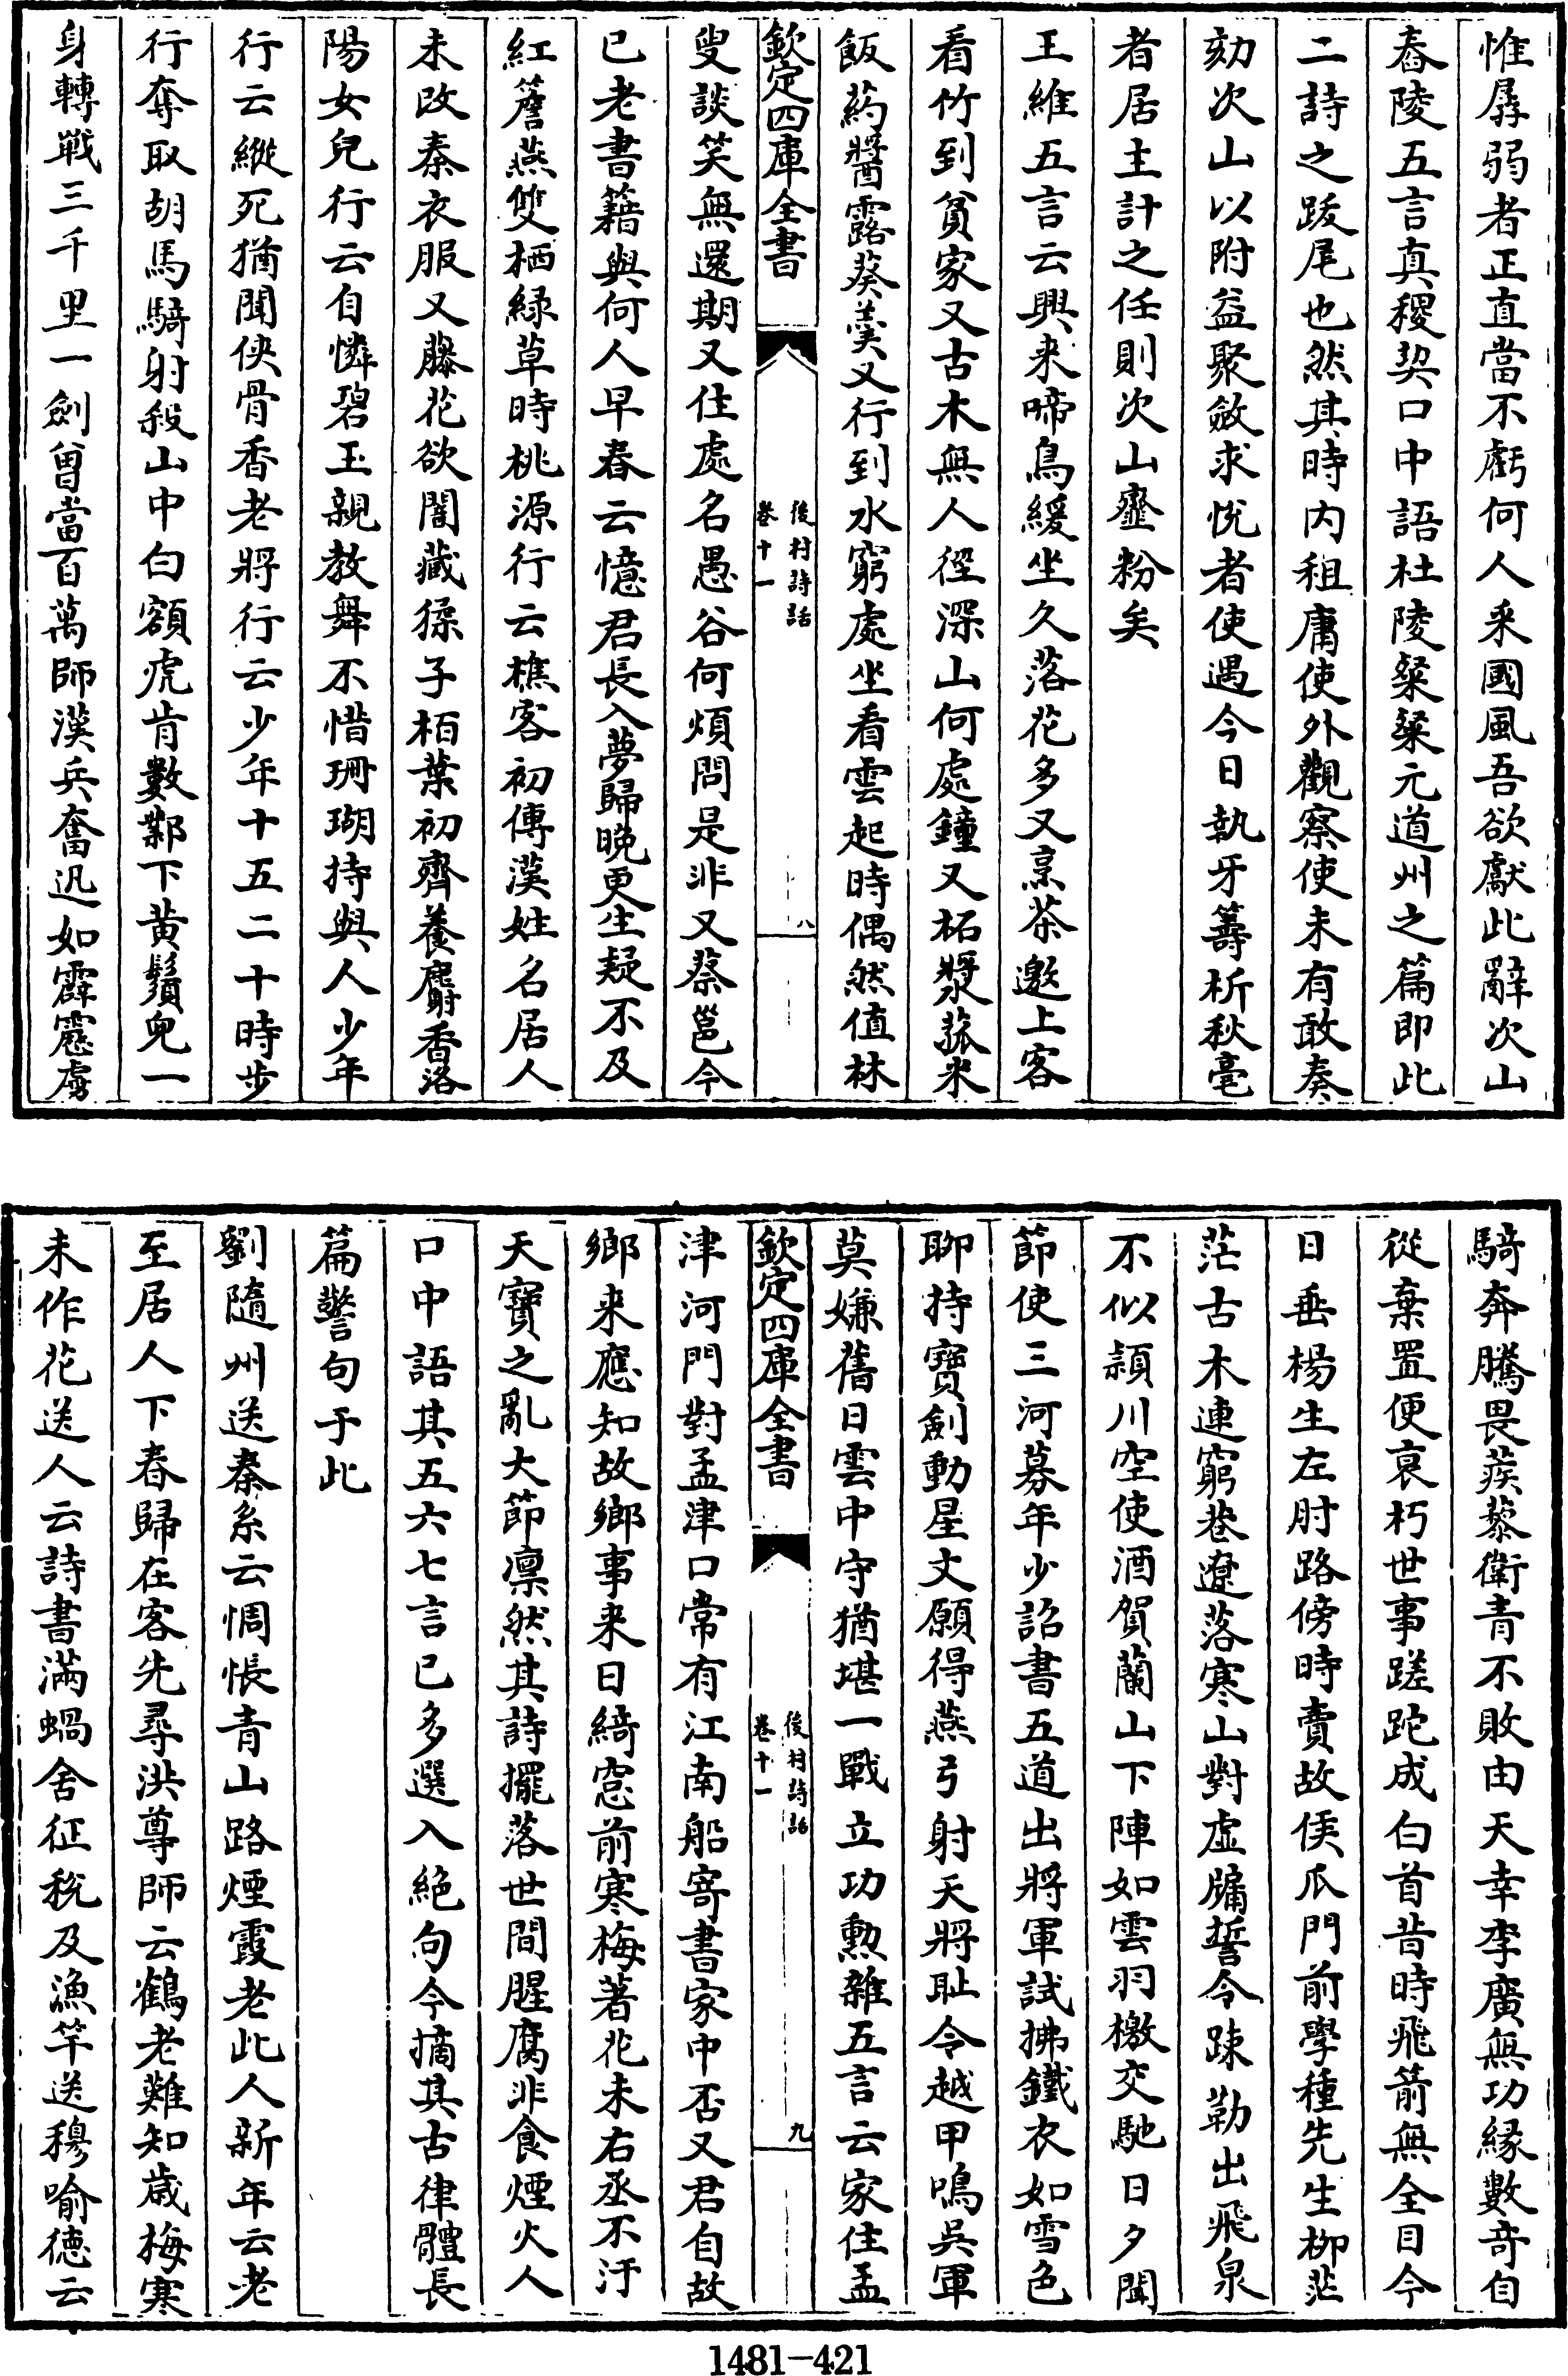 惟孱弱者正直當不虧何人采國風吾欲獻此辭次山
舂陵五言真稷契口中語杜陵粲粲元道州之篇即此
二詩之跋尾也然其時内租庸使外觀察使未有敢奏
劾次山以附益聚斂求悅者使遇今日執牙籌析秋毫
者居主計之任則次山齏粉矣
王維五言云興來啼鳥緩坐久落花多又烹茶邀上客
看竹到貧家又古木無人徑深山何處鐘又柘漿菰米
飯蒟醬露葵羹又行到水窮處坐看雲起時偶然值林
欽定四庫全書
後村詩話
卷十一
八
叟談笑無還期又住處名愚谷何煩問是非又蔡邕今
已老書籍與何人早春云憶君長入夢歸晚更生疑不及
紅簷燕雙栖緑草時桃源行云樵客初傳漢姓名居人
未改秦衣服又藤花欲闇藏猱子柏葉初齊養麝香洛
陽女兒行云自憐碧玉親教舞不惜珊瑚持與人少年
行云縱死猶聞俠骨香老將行云少年十五二十時步
行奪取胡馬騎射殺山中白額虎肯數鄴下黄鬚兒一
身轉戰三千里一劍曾當百萬師漢兵奮迅如霹靂虜
騎奔騰畏蒺藜衛青不敗由天幸李廣無功緣數奇自
從棄置便衰朽世事蹉跎成白首昔時飛箭無全目今
日垂楊生左肘路傍時賣故侯爪門前學種先生栁茫
茫古木連窮巷遼落寒山對虚牖誓令踈勒出飛泉
不似潁川空使酒賀蘭山下陣如雲羽檄交馳日夕聞
節使三河募年少詔書五道出將軍試拂鐵衣如雪色
聊持寶劍動星文願得燕弓射天將恥令越甲鳴吳軍
莫嫌舊日雲中守猶堪一戰立功勲雜五言云家住孟
欽定四庫全書
後村詩話
卷十一
九
津河門對孟津口常有江南船寄書家中否又君自故
鄉來應知故鄉事来日綺窓前寒梅著花未右丞不汙
天寶之亂大節凛然其詩擺落世間腥腐非食煙火人
口中語其五六七言已多選入絶句今摘其古律體長
篇警句于此
劉隨州送秦系云惆悵青山路煙霞老此人新年云老
至居人下春歸在客先尋洪尊師云鶴老難知歳梅寒
未作花送人云詩書滿蝸舍征稅及漁竿送穆喻德云
1481-421